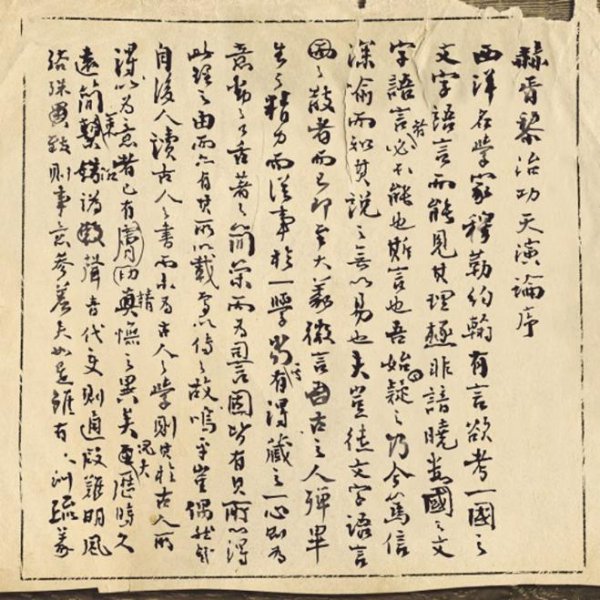 赫胥黎治功天演論序
西洋名學家穆勒約翰有言欲考一國之
文字語言而能見其理極非諳曉數國之文
字語言者必不能也斯言也吾始疑之乃今篤信
深喻而知其說之無以易也夫豈徒文字語言
之散者而已即至大義微言古之人殫畢
生之精力而從事於一學當其有得藏之一心則為
意動之口舌著之簡策而為詞言固皆有其所以得
此理之由而亦有其所以載焉以傳之故嗚乎豈偶然哉
自後人讀古人之書而未為古人之學則其於古人所
得以為意者已有膚切真精憮之異矣況夫更歷時久
遠簡牘沿錯譌聲音代變則通叚難明風
俗殊異致則事意參差夫如是雖有訓疏義